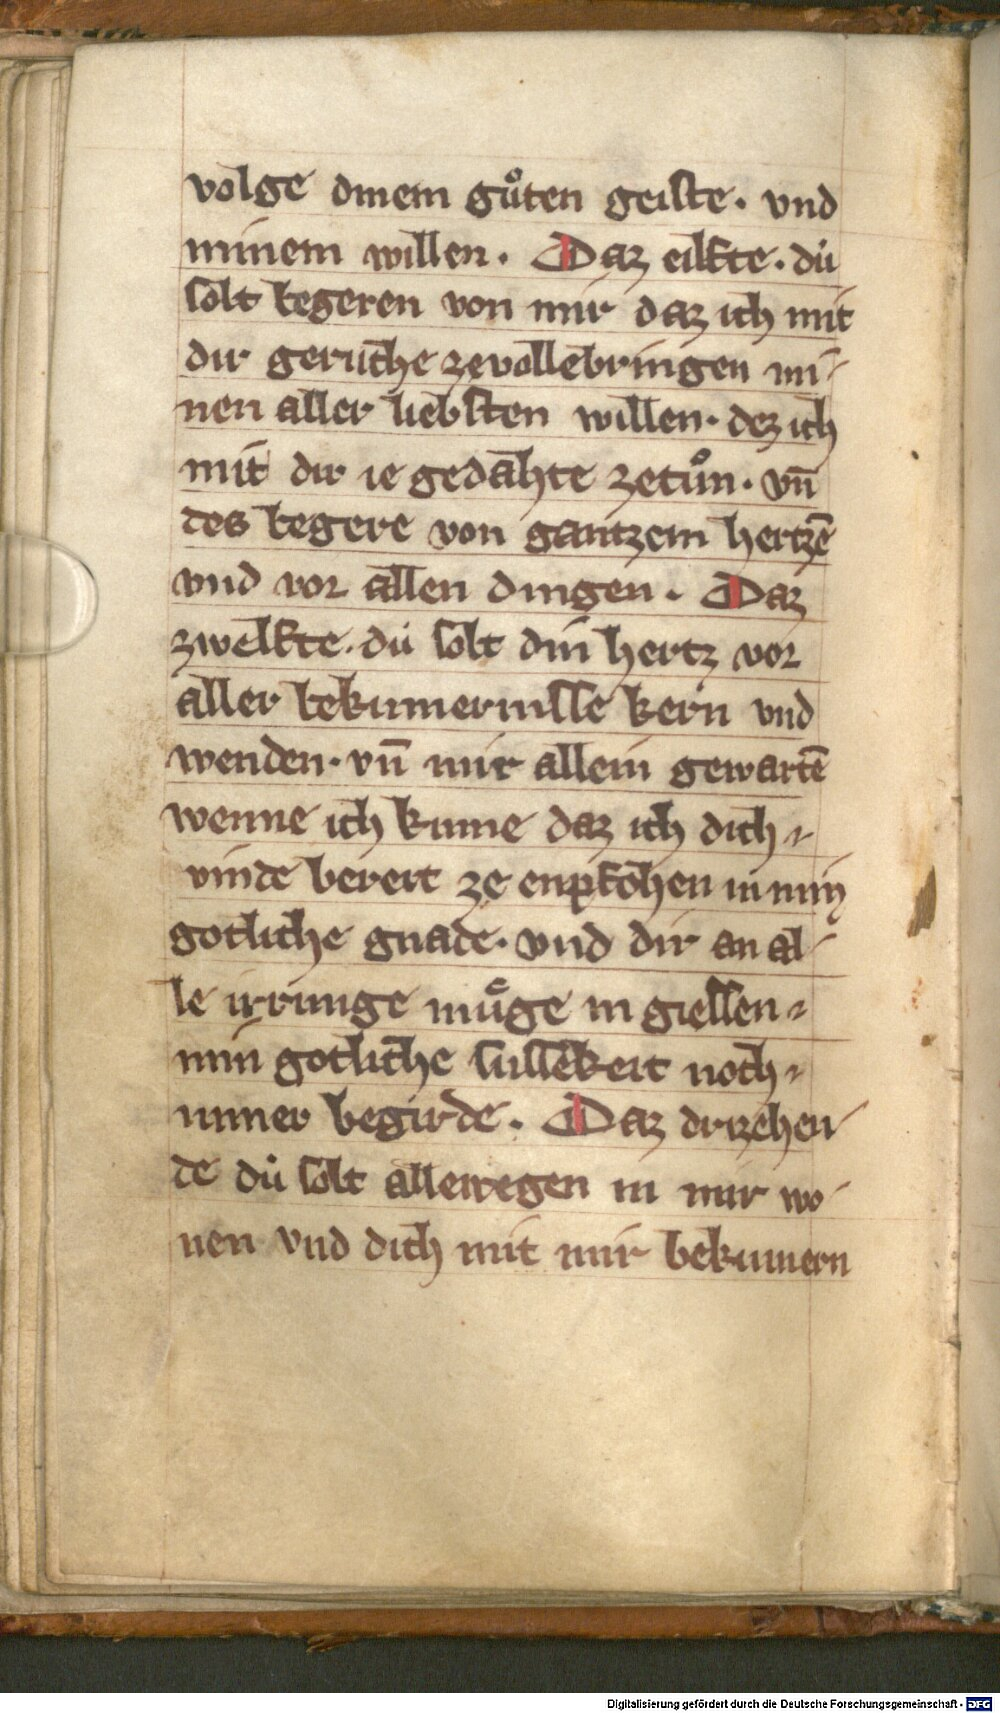 volge dinem gůten geiste. vnd
minem willen. Daz eilfte. du
solt begeren von mir daz ich mit
dir geruche zevollebringen mi-
nen aller liebsten willen. dez ich
mit dir ie gedahte zetůn. vn̄
des begere von gantzem hertzē
vnd vor allen dingen. Daz
zwelfte. du solt din hertz vor
aller bekumernisse kern vnd
wenden. vn̄ mir allein gewartē
wenne ich kume daz ich dich
vinde bereit ze enpfohen in min
gotliche gnade. vnd dir an al-
le irrunge muͤge in giessen
min gotliche sussekeit noch
miner begirde. Daz drizehen
de dů solt allewegen in mir wo-
nen vnd dich mit mir bekumern
Digitalisierung gefördert durch die Deutsche Forschungsgemeinschaft - DFG